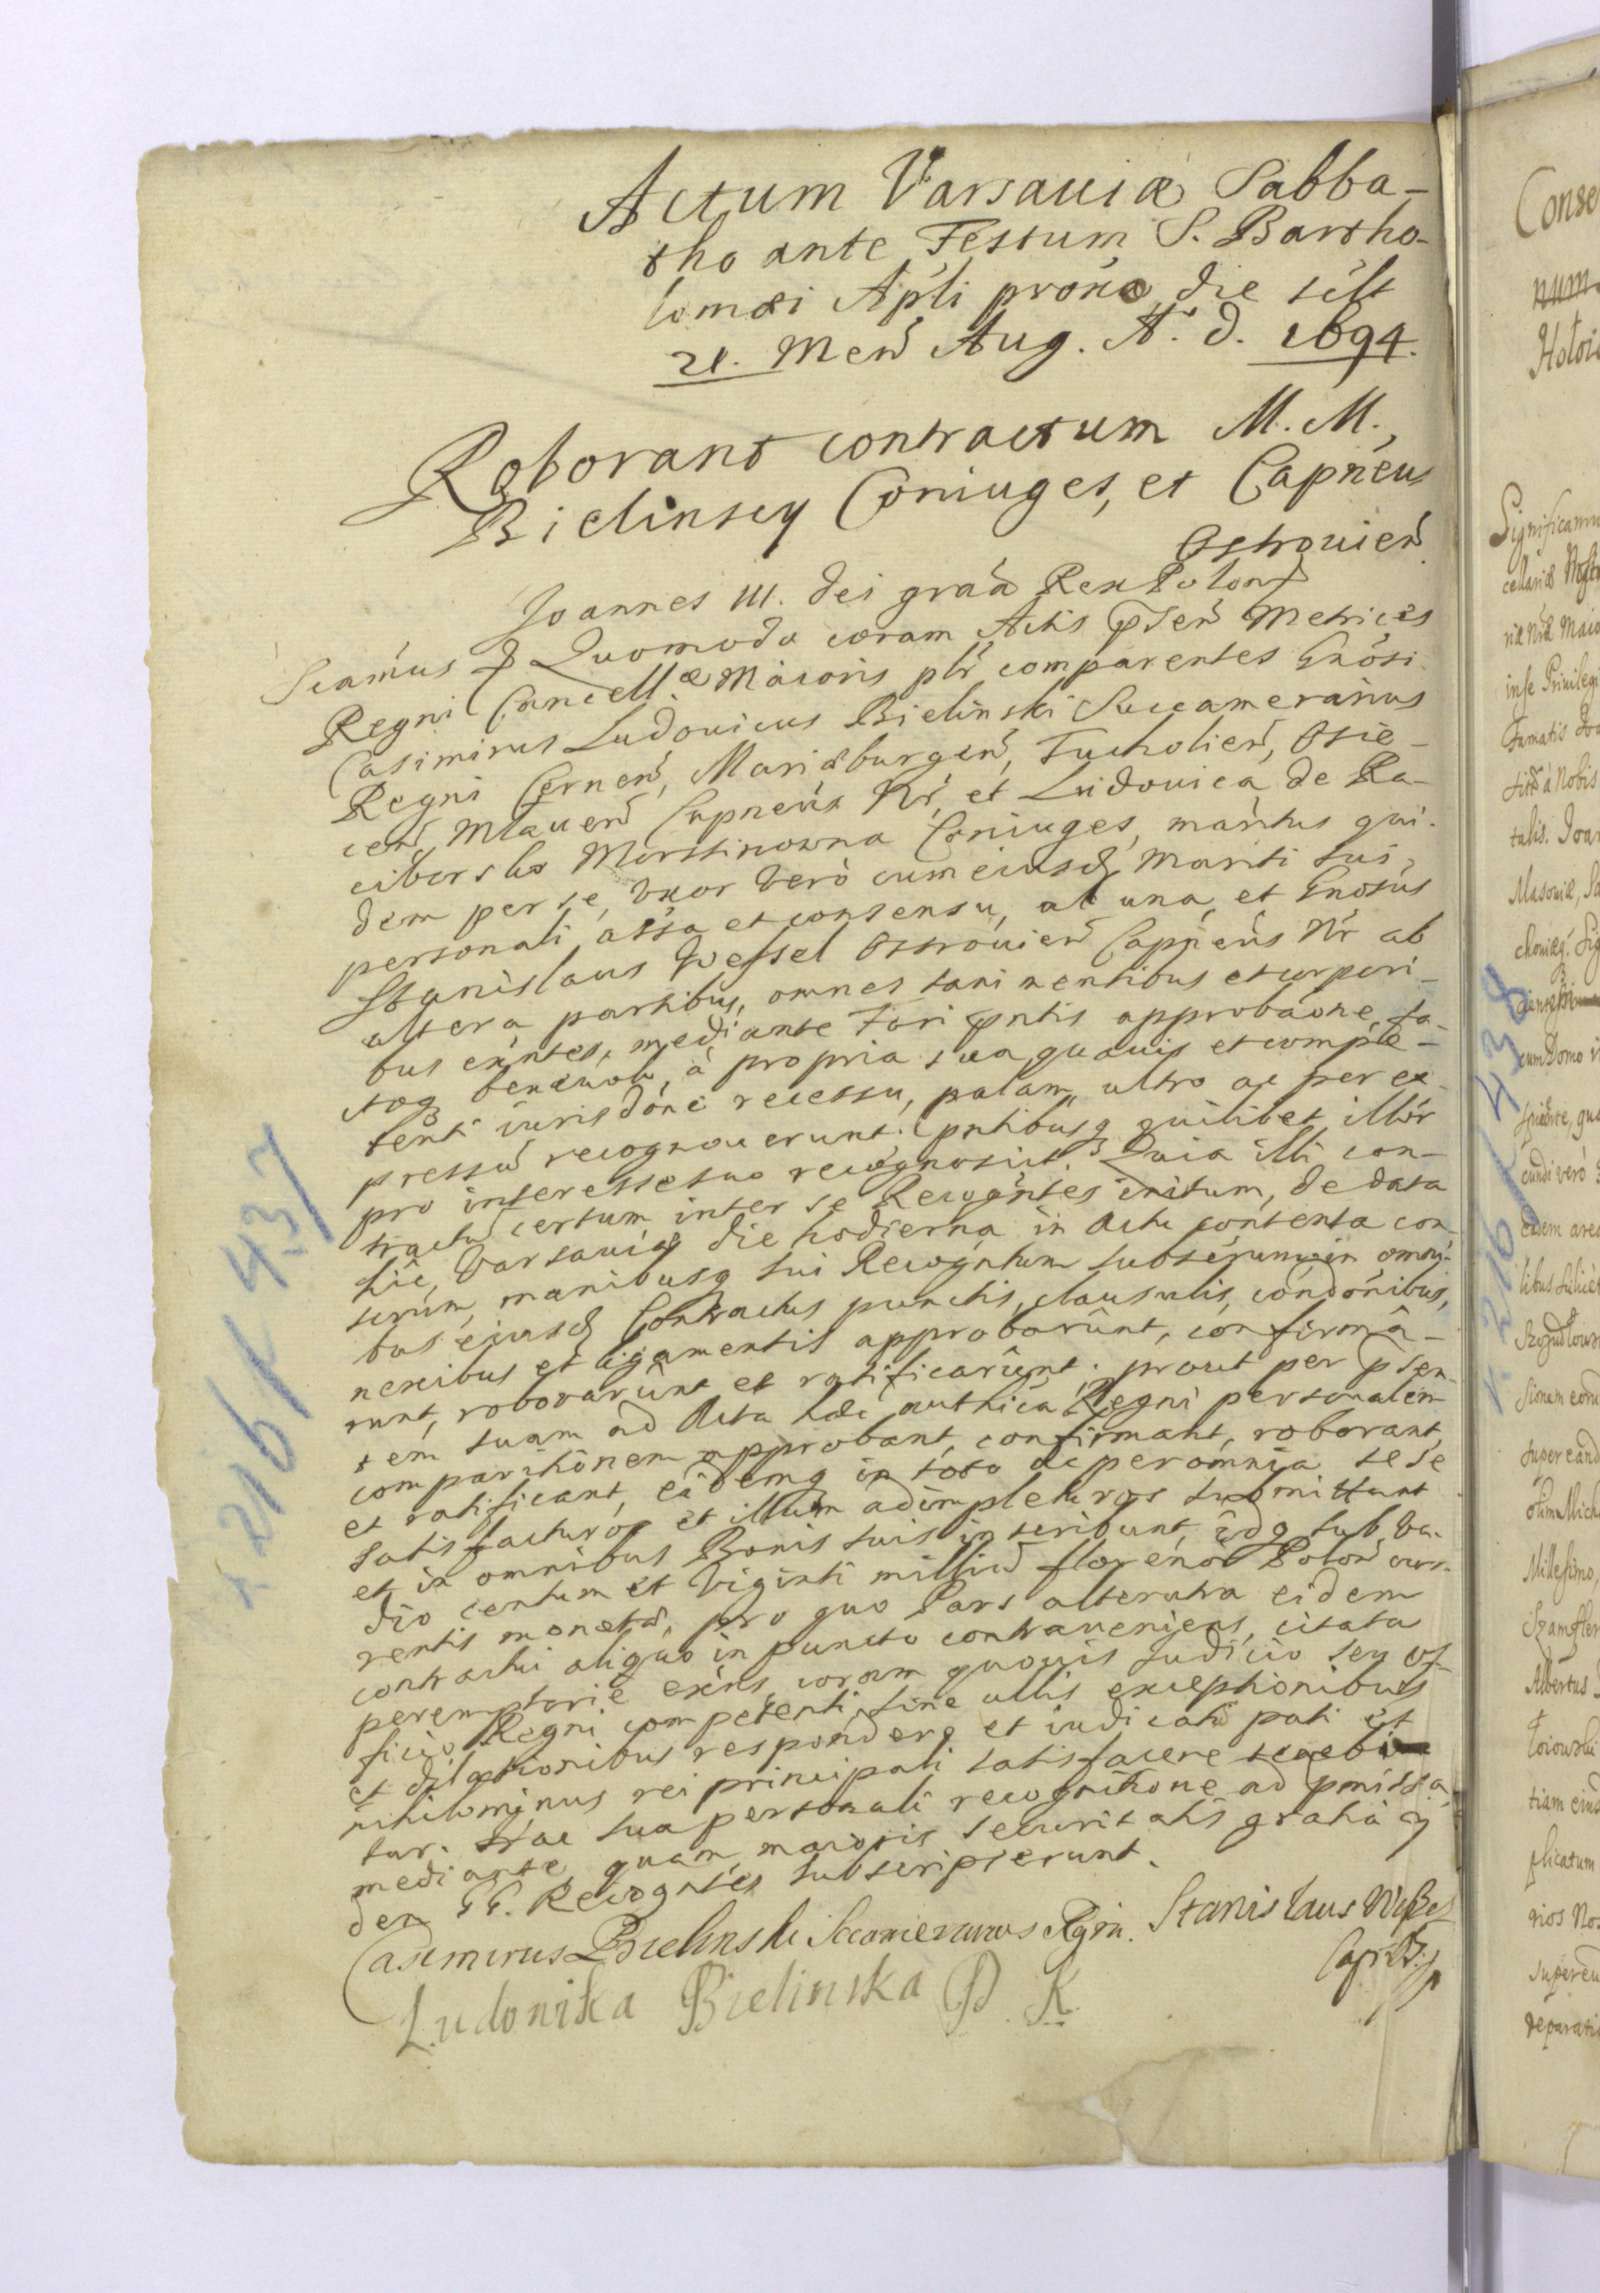 Actum Varsauiæ Sabba-
tho ante Festum S. Bartho-
lomæi Apli proxo die scilt
21. Men Aug. A. D. 1694.
Roborant contractum M. M.,
Bielinscy Coniuges, et Capneus
Ostrouien
Joannes III. Dei gratia Rex Polon
Significamus Quomodo coram Actis pnten Metrices
Regni Cancell.æ Maioris plr comparentes Gnosi
Casimirus Ludouicus Bielinski Succamerarius
Regni Cernen, Mariæburgen, Tucholien, Osie-
cen, Mlauen Capneus Nr, et Ludouica de Ra-
cibors ko Morstinowna Coniuges, maritus qui-
dem per se, Vxor verò cum eiusd Mariti sui
personali assa et consensu, ab una, et Gnosus
Stanislaus Wessel Ostrouien Capneus Nr ab
altera partibus, omnes sani mentibus et corpori-
bus exntes, mediante Fori pntis approbaone, fa-
benevole, à propria sua quauis et compe-
tenti iurisdone recessu, palam, ultro ac per ex-
pressu recognouerunt. Pntibusq quilibet illor
pro interesse suo recognoscit. Quia illi con-
tractu certum inter se Recogntes initum, de data
hic Varsauiæ die hodierna in Actu contenta con-
scriptum, manibusq sui Recogntum subscriptum in omni-
bus eiusd Contractus punctis, clausulis, condonibus,
nexibus et ligamentis approbarunt, confirmâ-
runt, roborarunt et ratificarunt: prout per psen-
tem suam ad Acta hæc authica Regni personalem
comparitionem approbant, confirmant, roborant,
et ratificant, eidemq in toto ac per omnia sese
satisfacturos et illum adimpleturos submittunt
et in omnibus Bonis suis inscribunt, idq sub va-
dio centum et Viginti milliu florenor Polon cur-
rentis monetæ, pro quo Pars alterutra eidem
contractui aliquo in puncto contraueniens, citata
peremptoriè exns, coram quouis Judicio seu of-
ficio Regni competenti, sine ullis exceptionibus
et dilationibus respondere et iudicatu pati et
nihilominus rei principali satisfacere tenebi
tur. Hac sua personali recognitione ad pmissa
mediante quam maioris securitatis gratia ij
dem GG. Recogntes subscripserunt.
Casimirus Bielinski Sccamerarius Regni. Stanislaus Weßel
Cap: O:
Ludowika Bielinska P K.
k. 216 / 437
k. 216 / 438
Conse
num
Significamu
Masouiæ, Sa
cum Domo
Millesimo,
Albertus